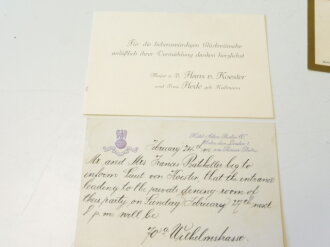 Für die liebenswürdigen Glückwünsche
anläßlich ihrer Vermählung danken herzlichst
Major a. D. Hans v. Koester
und Frau Hede geb.
Hotel Adlon Berlin W.
Unter den Linden 1
February 24th
Mr and Mrs Francis beg to
inform Lieut von Köster that the entrance
leading to the private dining room of
their party on Sunday February 27th next
9 p.m. will be
70a Wilhelmstrasse.